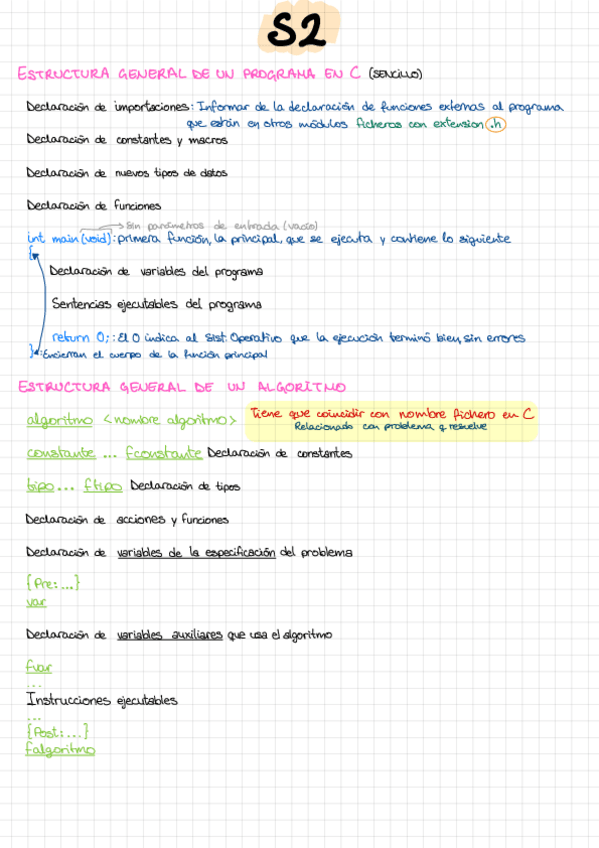 S2
ESTRUCTURA GENERAL DE UN PROGRAMA EN C (SENCILLO)
Declaración de importaciones: Informar de la declaración de funciones externas al programa
que están en otros módulos ficheros con extension .h
Declaración de constantes y macros
Declaración de nuevos tipos de datos
Declaración de funciones
→ Sin parámetros de entrada (vacío)
int main(void): primera función, la principal, que se ejecuta y contiene lo siguiente
{
Declaración de variables del programa
Sentencias ejecutables del programa
return 0;: El 0 indica al Sist Operativo que la ejecución terminó bien, sin errores
}: Encierran el cuerpo de la función principal
ESTRUCTURA GENERAL DE UN ALGORITMO
algoritmo <nombre algoritmo> Tiene que coincidir con nombre fichero en C
Relacionado con problema q resuelve
constante ... fconstante Declaración de constantes
tipo... ftipo Declaración de tipos
Declaración de acciones y funciones
Declaración de variables de la especificación del problema
{Pre:...}
var
Declaración de variables auxiliares que usa el algoritmo
fvar
...
Instrucciones ejecutables
...
{Post:...}
falgoritmo